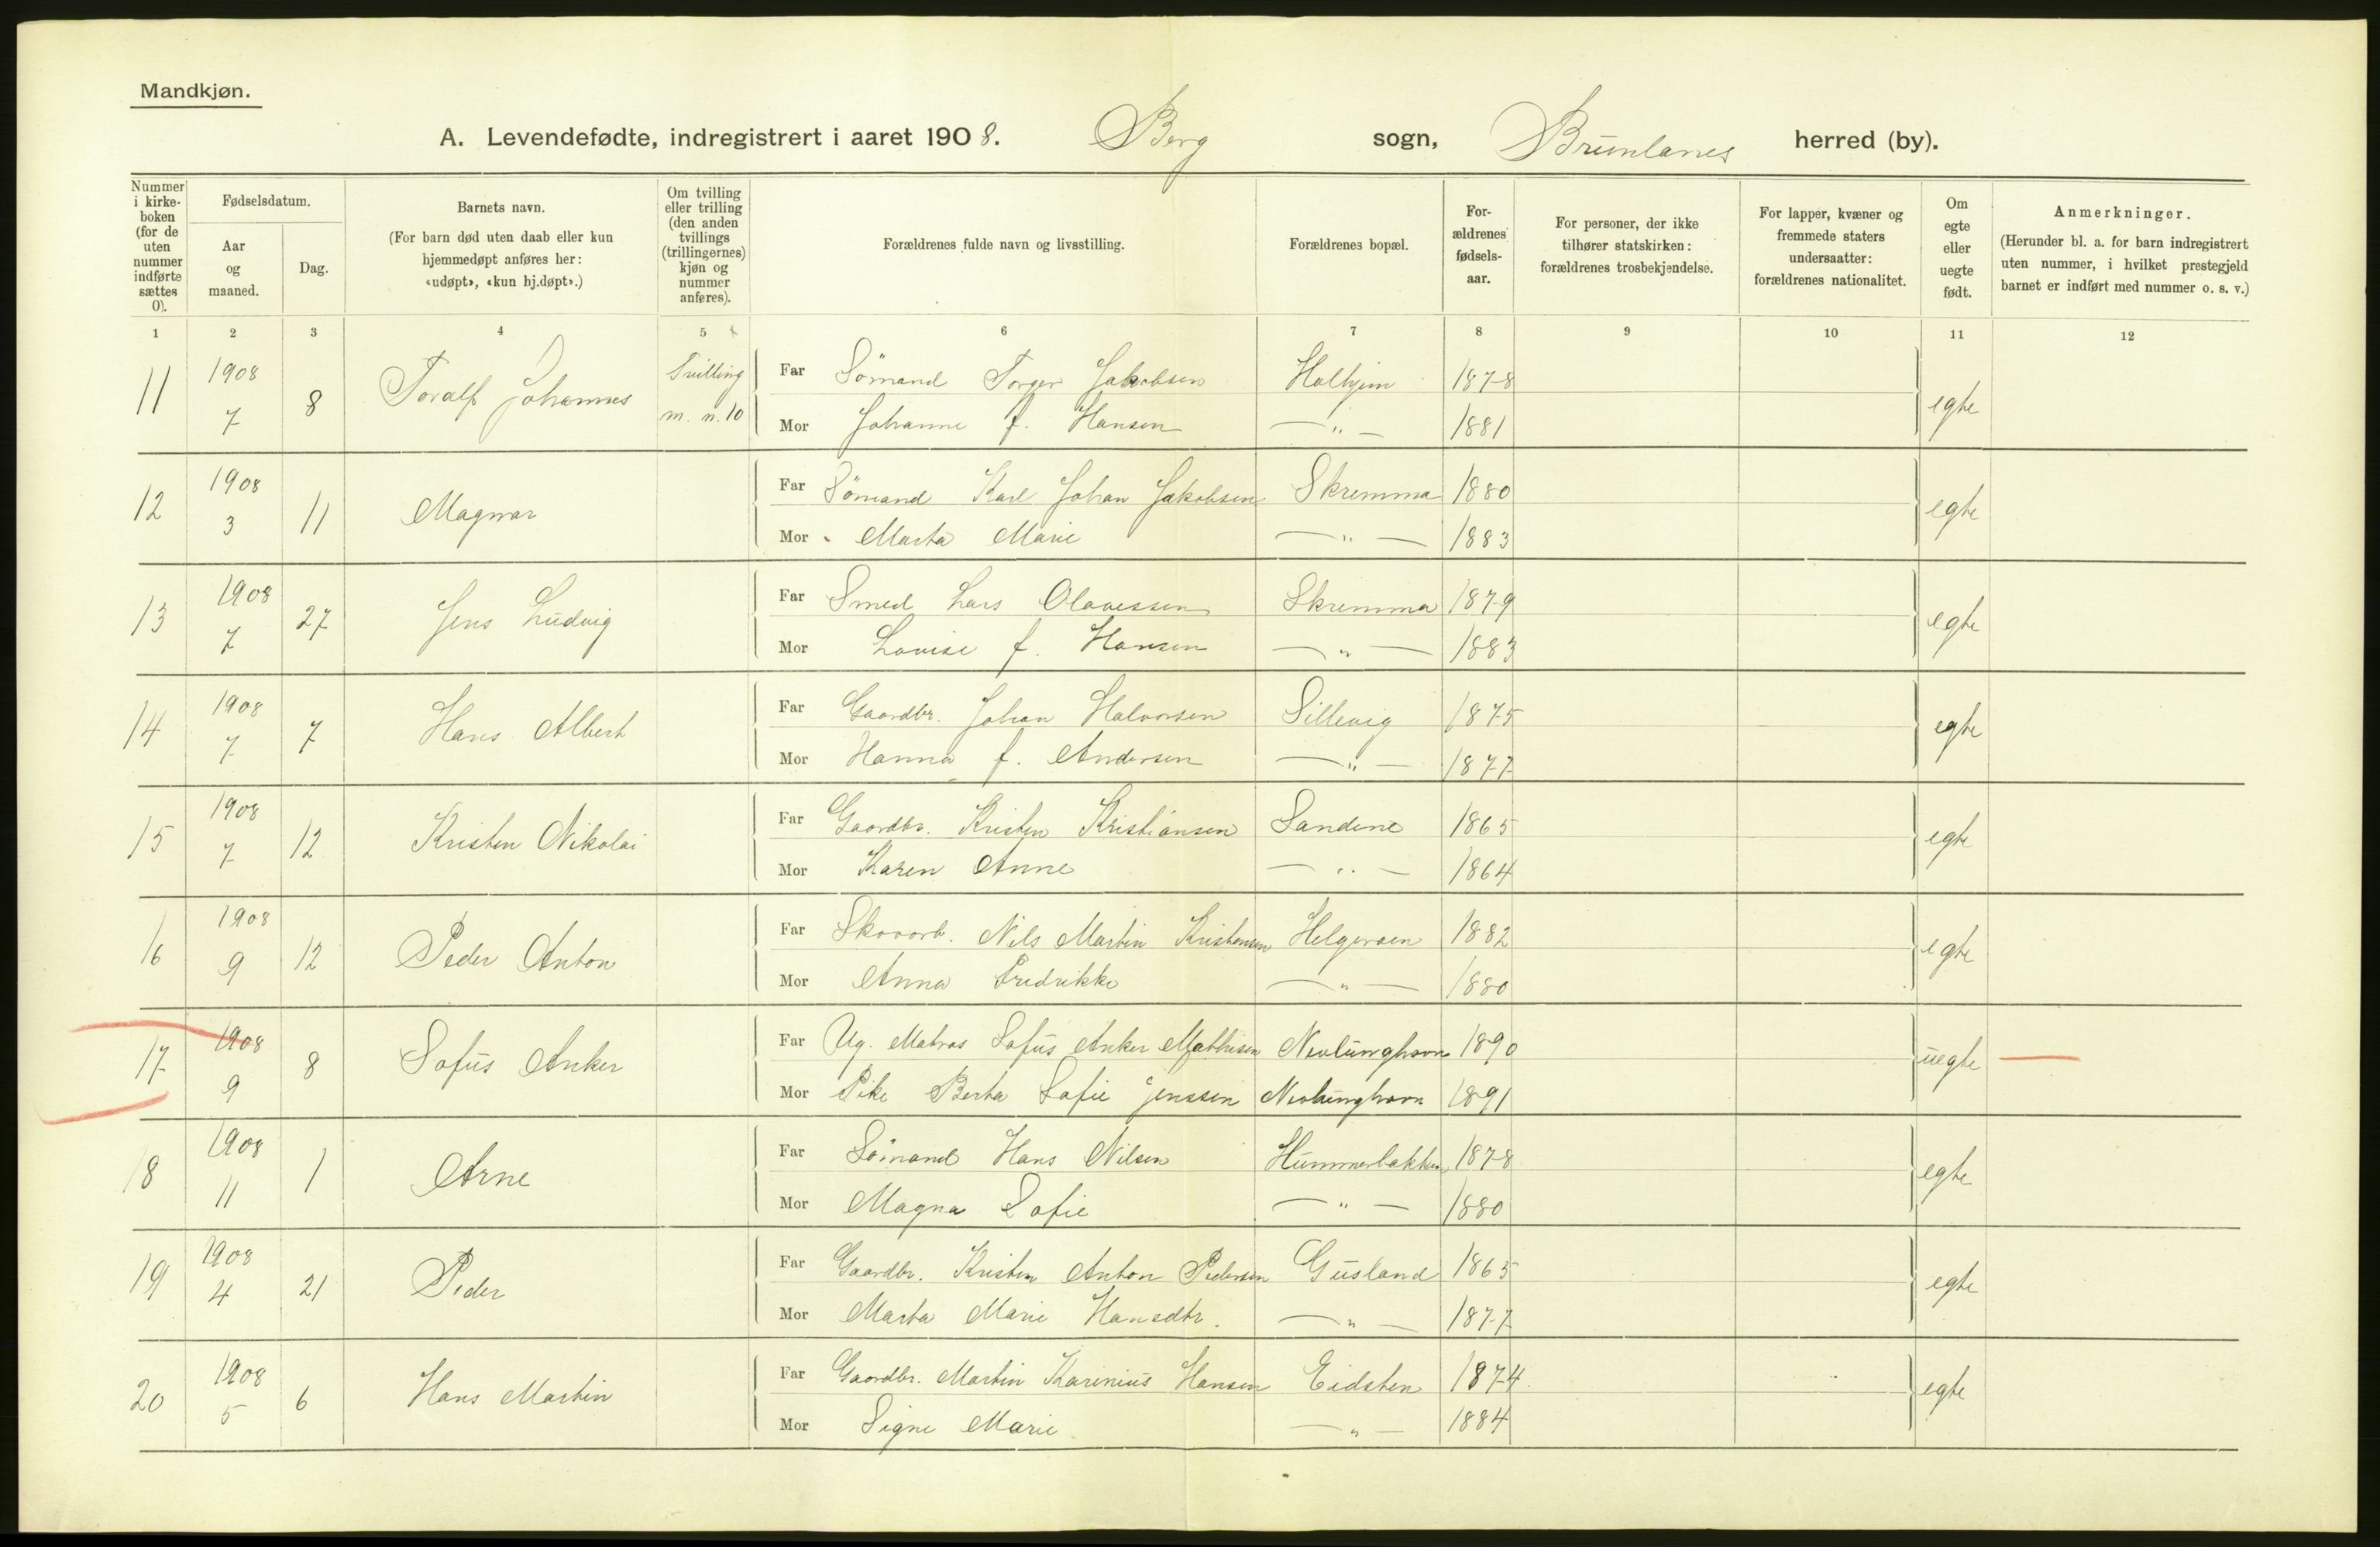 Mandkjøn.
A. Levendefødte, indregistrert i aaret 1908. Berg sogn, Brunlanes herred (by).
Nummer i kirkeboken (for de uten nummer indførte sættes 0).
Fødselsdatum.
Aar og maaned.
Dag.
Barnets navn.
(For barn død uten daab eller kun hjemmedøpt anføres her: «udøpt», «kun hj.døpt».)
Om tvilling eller trilling (den anden tvillings (trillingernes) kjøn og nummer anføres).
Forældrenes fulde navn og livsstilling.
Forældrenes bopæl.
Forældrenes fødselsaar.
For personer, der ikke tilhører statskirken: forældrenes trosbekjendelse.
For lapper, kvæner og fremmede staters undersaatter: forældrenes nationalitet.
Om egte eller uegte født.
Anmerkninger.
(Herunder bl. a. for barn indregistrert uten nummer, i hvilket prestegjeld barnet er indført med nummer o. s. v.)
1 2 3 4 5 6 7 8 9 10 11 12
11 1908 7 8 Toralf Johannes Tvilling m. n. 10 egte
Far Sömand Torger Jakobsen Halhjem 1878
Mor Johanne f. Hansen — " — 1881
12 1908 3 11 Magnar egte
Far Sömand Karl Johan Jakobsen Skremma 1880
Mor Marta Marie — " — 1883
13 1908 7 27 Jens Ludvig egte
Far Smed Lars Olavessen Skremma 1879
Mor Lovise f. Hansen — " — 1883
14 1908 7 7 Hans Albert egte
Far Gaardbr. Johan Halvorsen Sillevig 1875
Mor Hanna f. Andersen — " — 1877
15 1908 7 12 Kristen Nikolai egte
Far Gaardbr. Kristen Kristiansen Sandene 1865
Mor Karen Anne — " — 1864
16 1908 9 12 Peder Anton egte
Far Skovarb. Nils Martin Kristensen Helgeroen 1882
Mor Anna Fredrikke — " — 1880
17 1908 9 8 Sofus Anker uegte —
Far Ug. Matros Sofus Anker Mathisen Nevlunghavn 1890
Mor Pike Berta Sofie Jenssen Nevlunghavn 1891
18 1908 11 1 Arne egte
Far Sömand Hans Nilsen Hummerbakken 1878
Mor Magna Sofie — " — 1880
19 1908 4 21 Peder egte
Far Gaardbr. Kristen Anton Pedersen Gusland 1865
Mor Marta Marie Hansdtr. — " — 1877
20 1908 5 6 Hans Martin egte
Far Gaardbr. Martin Karinius Hansen Eidsten 1874
Mor Signe Marie — " — 1884